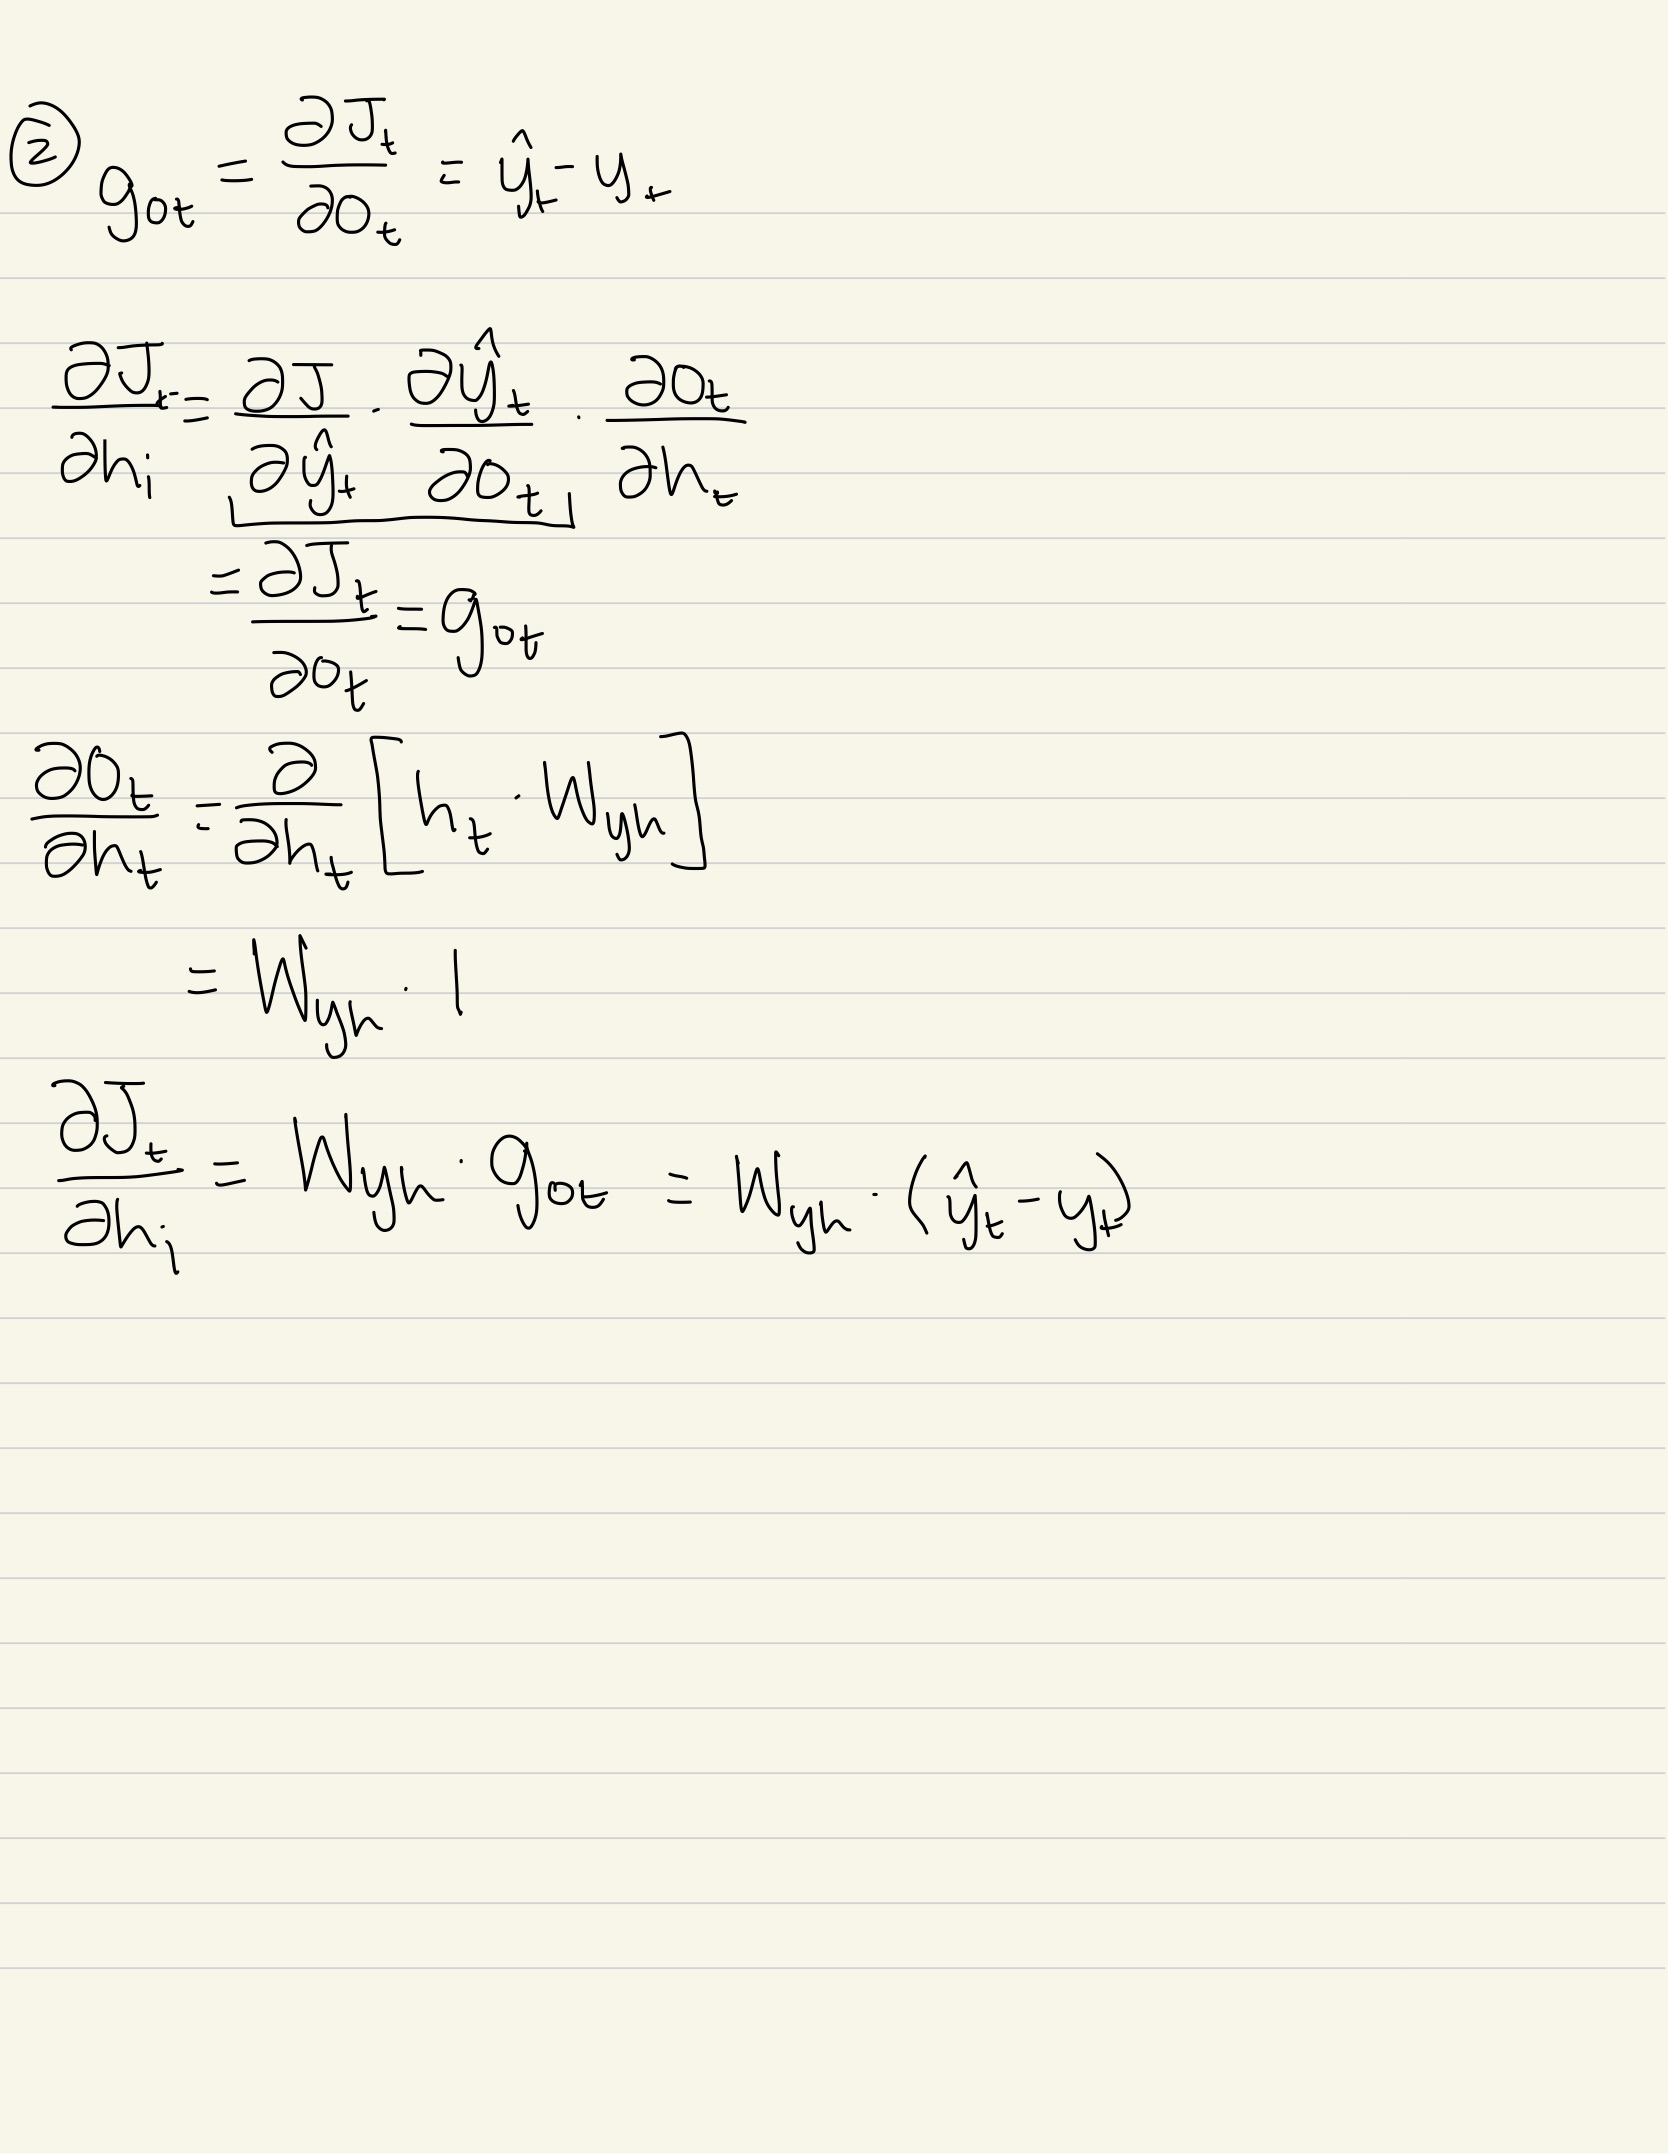 ② g_{ot} = ∂J_t/∂o_t = ŷ_t - y_t
∂J_t/∂h_i = ∂J/∂ŷ_t · ∂ŷ_t/∂o_t · ∂o_t/∂h_t
= ∂J_t/∂o_t = g_{ot}
∂o_t/∂h_t = ∂/∂h_t [h_t · W_{yh}]
= W_{yh} · 1
∂J_t/∂h_i = W_{yh} · g_{ot} = W_{yh} · (ŷ_t - y_t)